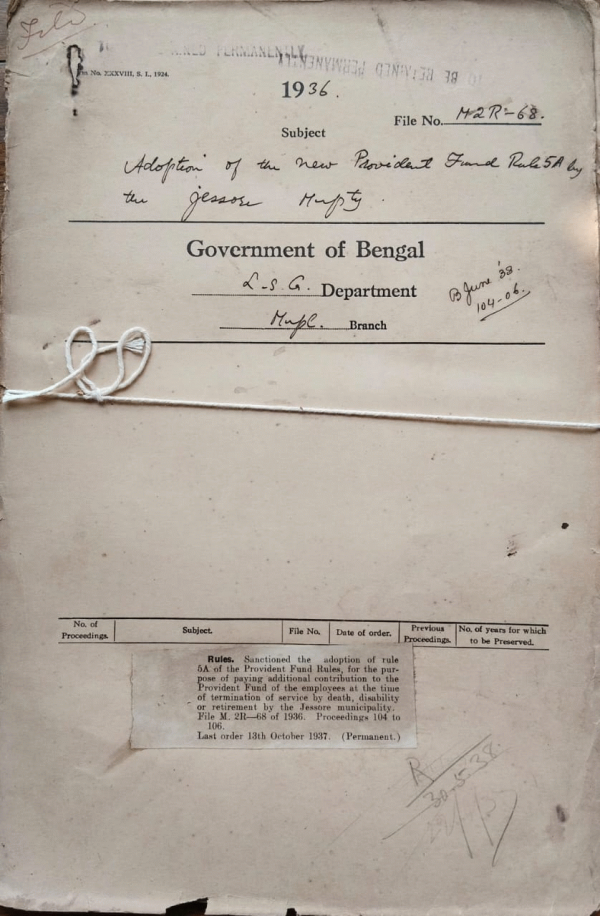 TO BE RETAINED PERMANENTLY
No. XXXVIII, S. I., 1924.
TO BE RETAINED PERMANENTLY
1936.
File No. M-2R-68.
Subject
Adoption of the new Provident Fund Rule 5A by
the Jessore Mupty.
Government of Bengal
L.S.G. Department
B June '38.
104-06.
Mupl. Branch
No. of Proceedings. Subject. File No. Date of order. Previous Proceedings. No. of years for which to be Preserved.
Rules. Sanctioned the adoption of rule
5A of the Provident Fund Rules, for the pur-
pose of paying additional contribution to the
Provident Fund of the employees at the time
of termination of service by death, disability
or retirement by the Jessore municipality.
File M. 2R—68 of 1936. Proceedings 104 to
106.
Last order 13th October 1937. (Permanent.)
R
30-5-38.